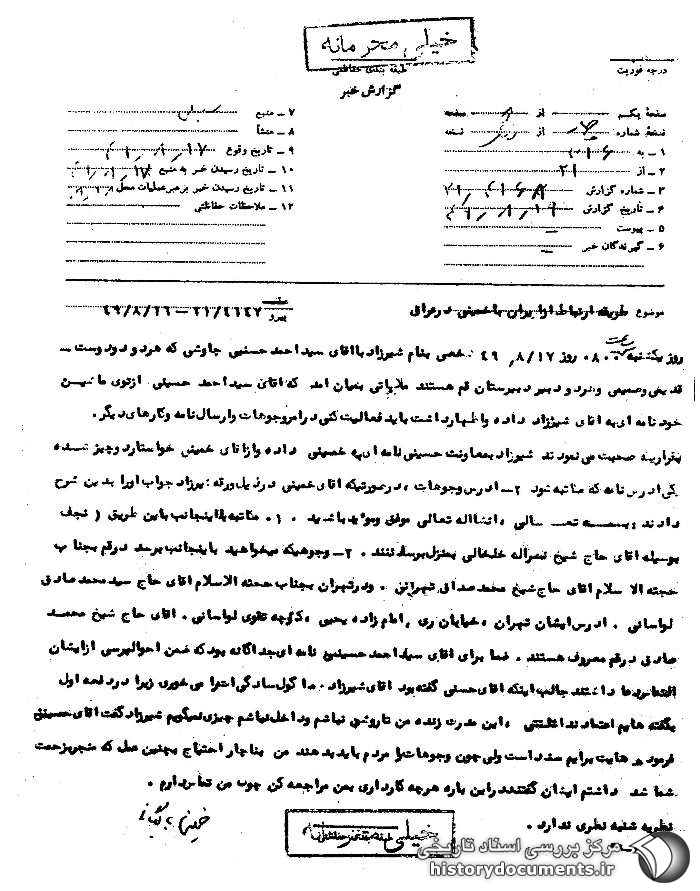 خیلی محرمانه
طبقه بندی حفاظتی
درجه فوریت
گزارش خبر
صفحهٔ یکم از صفحه
نسخهٔ شماره از نسخه
۱ ـ به ۳۱۶
۲ ـ از ۲۱
۳ ـ شماره گزارش
۴ ـ تاریخ گزارش
۵ ـ پیوست
۶ ـ گیرندگان خبر
۷ ـ منبع
۸ ـ منشأ
۹ ـ تاریخ وقوع
۱۰ ـ تاریخ رسیدن خبر به منبع
۱۱ ـ تاریخ رسیدن خبر برهبر عملیات محل
۱۲ ـ ملاحظات حفاظتی
موضوع طریقه ارتباط از ایران با خمینی در عراق
پیرو ۲۱/۴۱۴۷ – ۴۹/۸/۱۶
روز یکشنبه ساعت ۰۸۰۰ روز ۴۹/۸/۱۷ شخصی بنام شیرزاد با آقای سید احمد حسینی چاوشی که هر دو دوست
قدیمی و صمیمی و هر دو دبیر دبیرستان قم هستند ملاقاتی بعمل آمد که آقای سید احمد حسینی از توی ماشین
خود نامه ای به آقای شیرزاد داده و اظهار داشت باید فعالیت کنی در امر وجوهات و ارسال نامه و کارهای دیگر .
بقراریکه صحبت می نمودند شیرزاد بمعاونت حسینی نامه ای به خمینی داده و از آقای خمینی خواستار دو چیز شده
یکی آدرس نامه که مکاتبه شود ۲ـ آدرس وجوهات ، در صورتیکه آقای خمینی در ذیل ورقه شیرزاد جواب او را بدین شرح
دادند ؛ بسمه تعالی ، انشاالله تعالی موفق و موید باشید . ۱ـ مکاتبه با اینجانب باین طریق ( نجف
بوسیله آقای حاج شیخ نصراله خلخالی بمنزل برسانند . ۲ـ وجوهیکه میخواهید باینجانب برسد در قم بجناب
حجته الاسلام آقای حاج شیخ محمد صادق تهرانی و در تهران بجناب حجته الاسلام آقای حاج سید محمد صادق
لواسانی . آدرس ایشان تهران ، خیابان ری ، امام زاده یحیی ، کوچه تقوی لواسانی . آقای حاج شیخ محمد
صادق در قم معروف هستند . ضمنا برای آقای سید احمد حسینی نامه ای جداگانه بود که ضمن احوالپرسی از ایشان
داشتند جالب اینکه آقای حسینی گفته بود آقای شیرزاد گول سادگی را می خوری زیرا در دفعه اول
بگفته هایم اعتماد نداشتی ، این مدرک زنده من تا روشن نباشم و داخل نباشم چیزی نمیگویم شیرزاد گفت آقای حسینی
فرموده هایت برایم سند است ولی چون وجوهات را مردم باید بدهند من بناچار احتیاج بچنین عمل که منجر بزحمت
شما شد داشتم ایشان گفتند در این باره هر چه کار داری بمن مراجعه کن چون من تماس دارم .
نظریه شنبه نظری ندارد .
خیلی محرمانه
مرکز بررسی اسناد تاریخی
historydocuments.ir